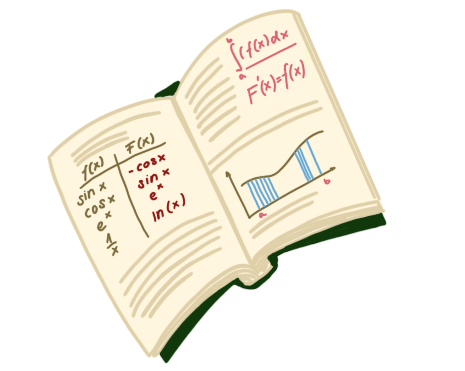 f(x) F(x)
sin x -cosx
cosx sin x
e^x e^x
1/x ln(x)
∫_a^b (f(x)dx
F'(x)=f(x)
a b